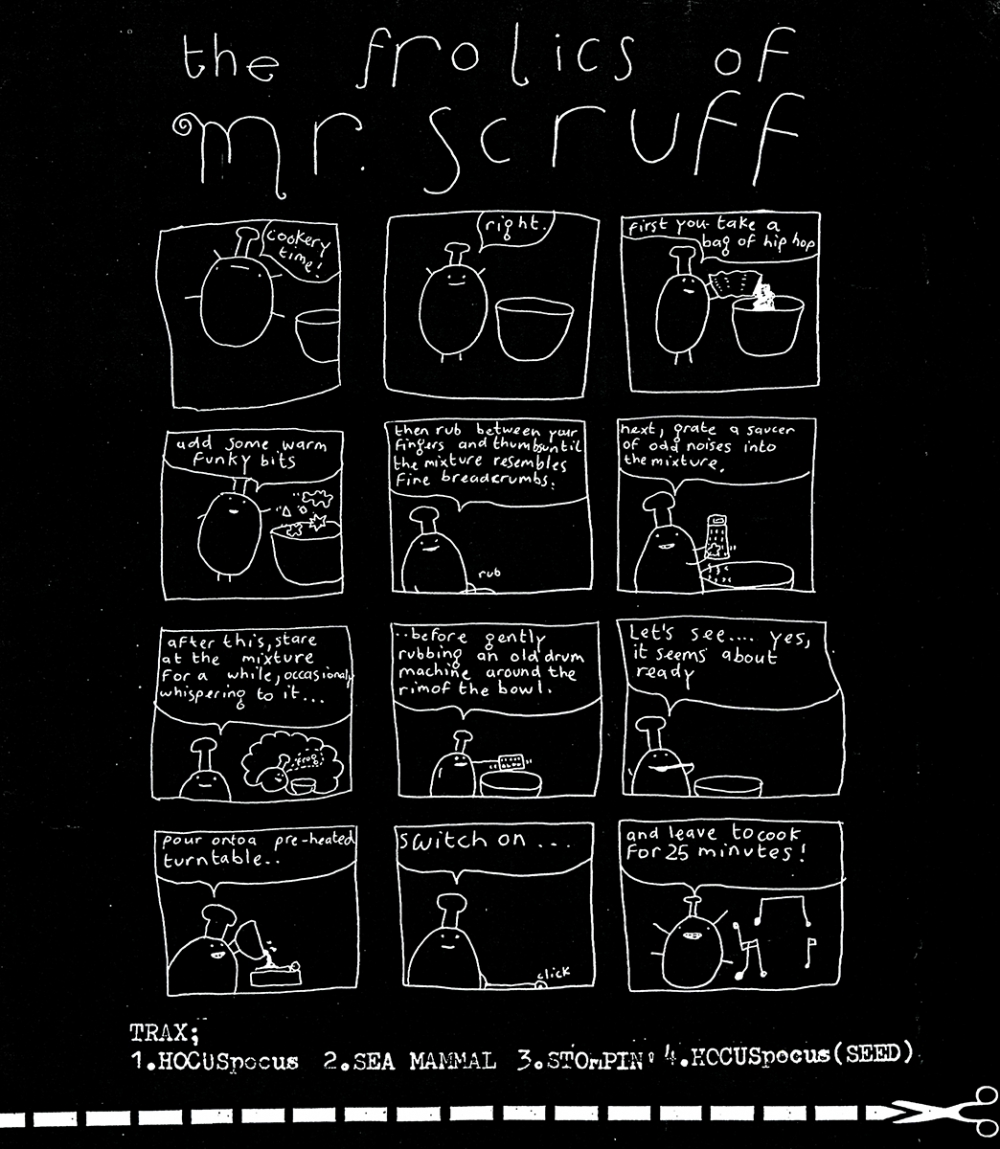 the frolics of
mr. scruff
cookery
time!
right.
first you take a
bag of hip hop
add some warm
funky bits
then rub between your
fingers and thumbs until
the mixture resembles
fine breadcrumbs.
rub
next, grate a saucer
of odd noises into
the mixture.
after this, stare
at the mixture
for a while, occasionaly
whispering to it...
frog
..before gently
rubbing an old drum
machine around the
rim of the bowl.
Let's see.... yes,
it seems about
ready
pour onto a pre-heated
turntable..
switch on ...
click
and leave to cook
for 25 minutes!
TRAX;
1.HOCUSpocus 2.SEA MAMMAL 3.STOmPIN' 4.HOCUSpocus(SEED)